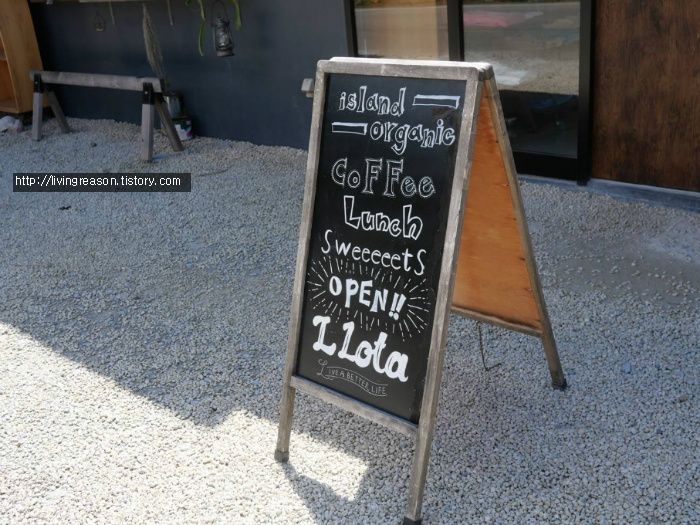 island
organic
COFFee
Lunch
Sweeeeets
OPEN!!
I Lota
LIVE A BETTER LIFE
http://livingreason.tistory.com